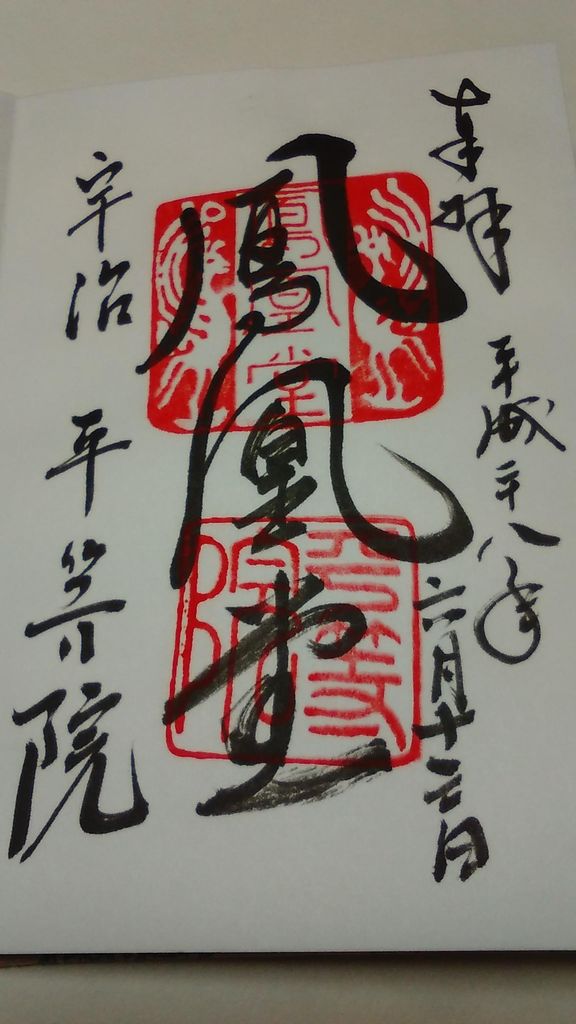 奉拝
平成二十八年
六月十三日
鳳凰堂
鳳凰堂
平等院
宇治 平等院